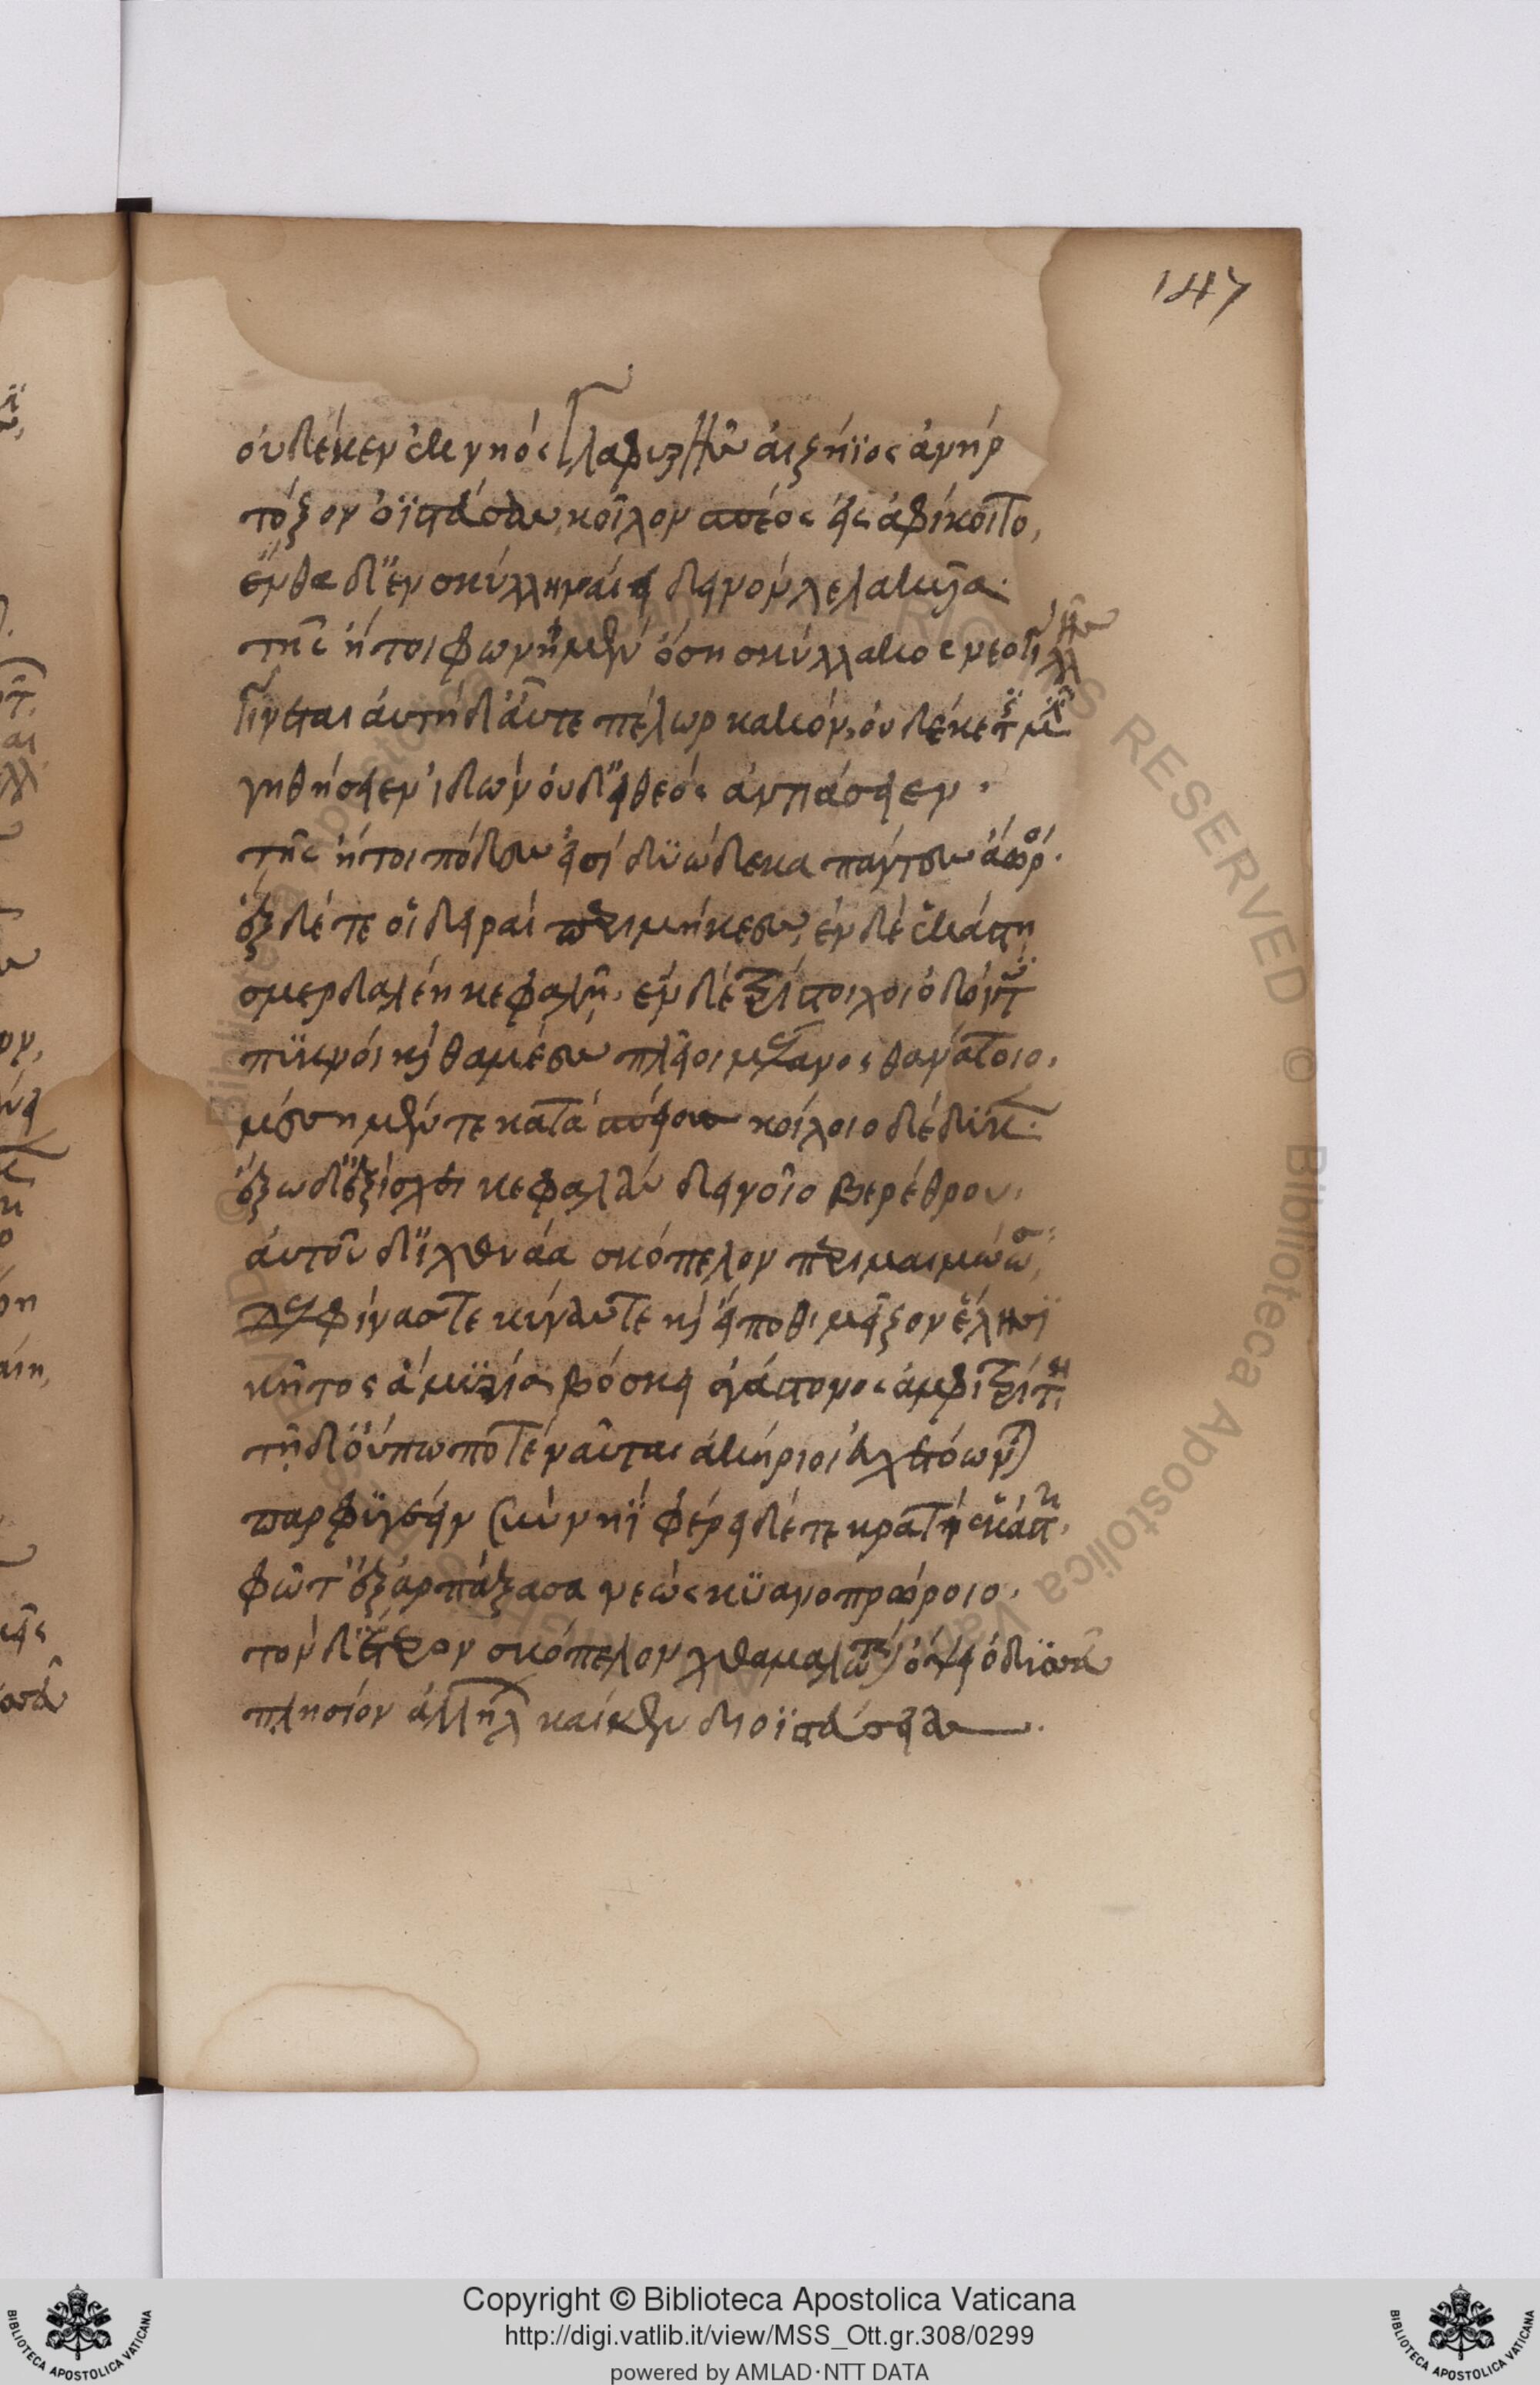 147
οὐδέ κεν ἐκ νηὸς γλαφυρῆς αἰζήϊος ἀνὴρ
τόξον ὀϊστεύσας κοῖλον σπέος εἰσαφίκοιτο,
ἔνθα δ' ἐν σκύλλη ναίει δεινὸν λελακυῖα·
τῆς ἤτοι φωνὴ μὲν ὅση σκύλλακος νεογιλλῆς
γίνεται αὐτὴ δ' αὖτε πέλωρ κακόν, οὐδέ κέ τίς μιν
γηθήσειεν ἰδὼν οὐδ' εἰ θεὸς ἀντιάσειεν·
τῆς ἤτοι πόδες εἰσὶ δυώδεκα πάντες ἄωροι·
ἓξ δέ τέ οἱ δειραὶ περιμήκεες, ἐν δὲ ἑκάστη
σμερδαλέη κεφαλὴ, ἐν δὲ τρίστοιχοι ὀδόντες
πυκνοὶ καὶ θαμέες πλεῖοι μέλανος θανάτοιο,
μέσση μέν τε κατὰ σπείους κοίλοιο δέδυκεν·
ἔξω δ' ἐξίσχει κεφαλὰς δεινοῖο βερέθρου,
αὐτοῦ δ' ἰχθυάα σκόπελον περιμαιμώωσα,
δελφῖνάς τε κύνας τε καὶ εἴ ποθι μεῖζον ἕλῃσι
κῆτος ἃ μυρία βόσκει ἀγάστονος ἀμφιτρίτη
τῇ δ' οὔπω ποτὲ ναῦται ἀκήριοι εὐχετόωνται
παρφυγέειν σὺν νηΐ φέρει δέ τε κρατὶ ἑκάστῳ
φῶτ' ἐξαρπάξασα νεὼς κυανοπρώροιο,
τὸν δ' ἕτερον σκόπελον χθαμαλώτερον ὄψει ὀδυσσεῦ
πλησίον ἀλλήλων καί κεν διοϊστεύσειας
Copyright © Biblioteca Apostolica Vaticana
http://digi.vatlib.it/view/MSS_Ott.gr.308/0299
powered by AMLAD·NTT DATA